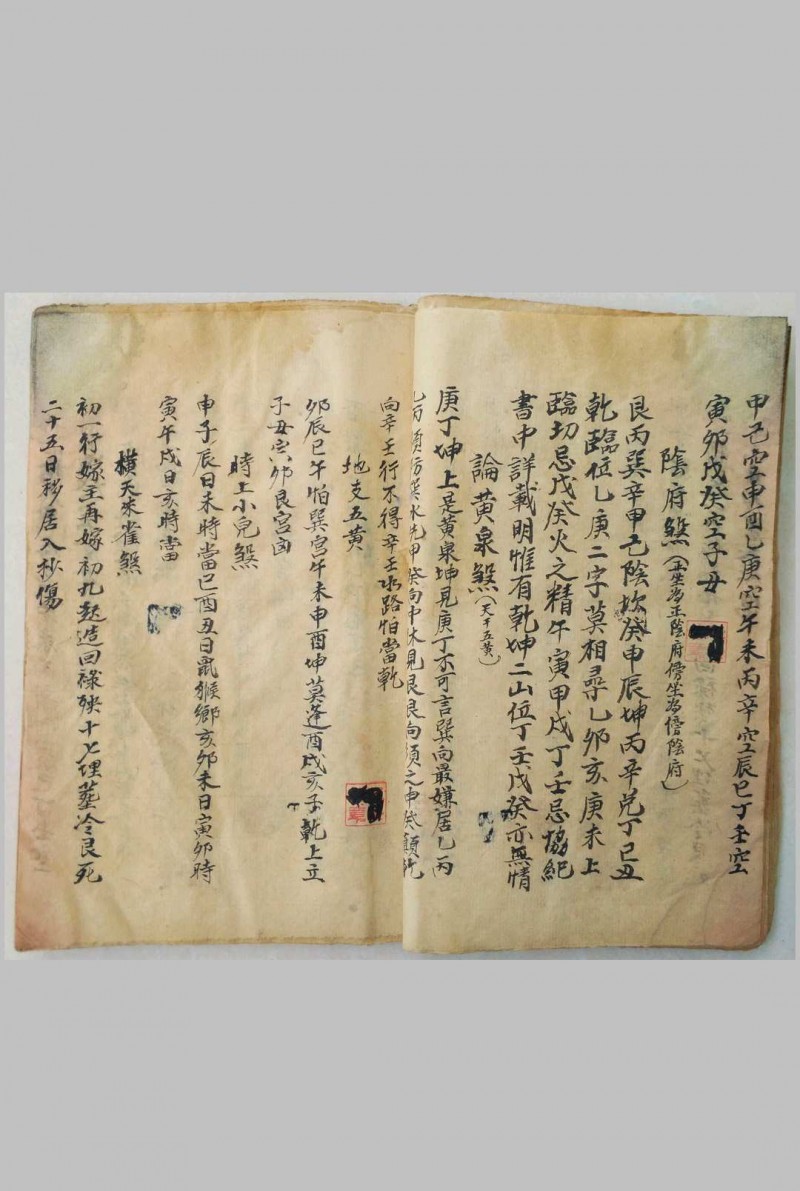 甲己空申酉乙庚空午未丙辛空辰巳丁壬空
寅卯戊癸空子丑
陰府煞(正坐為正陰府傍坐為傍陰府)
艮丙巽辛甲己陰坎癸申辰坤丙辛兌丁巳丑
乾臨位乙庚二字莫相尋乙卯亥庚未上
臨切忌戊癸火之精午寅甲戌丁壬忌協紀
書中詳載明惟有乾坤二山位丁壬戊癸亦無情
論黃泉煞(天干五黃)
庚丁坤上是黃泉坤見庚丁不可言巽向最嫌居乙丙
乙丙須防巽水先甲癸向中休見艮艮向須之申癸顛乾
向辛壬行不得辛壬水路怕當乾
地支五黃
卯辰巳午怕巽宮午未申酉坤莫逢酉戌亥子乾上立
子丑寅卯艮宮凶
時上小兒煞
申子辰日未時當巳酉丑日鼠猴鄉亥卯未日寅卯時
寅午戌日亥時當
橫天朱雀煞
初一行嫁主再嫁初九起造回祿殃十七埋葬冷艮死
二十五日移居人財傷